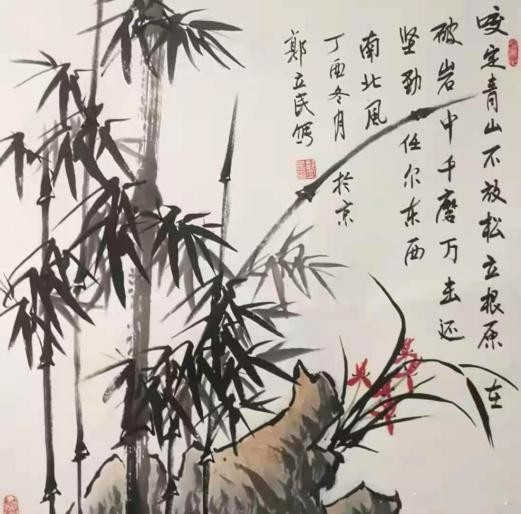 咬定青山不放松立根原在
破岩中千磨万击还
坚劲任尔东西
南北風
丁酉冬月於京
鄭立民写